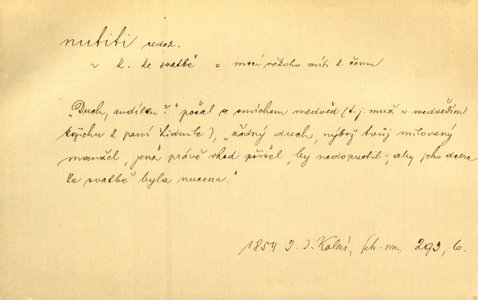 nutiti nedok.
~ k. ke svatbě = mocí někoho míti k čemu
"Duch, andílku?" počal s smíchem medvěd (t.j. muž v medvědím
kožichu k paní Lidmile), "žádný duch, nýbrž tvůj milovaný
manžel, jenž právě vhod přišel, by nedopustil, aby jeho dcera
ke svatbě byla nucena."
1854 J. J. Kolár, 293, 6.